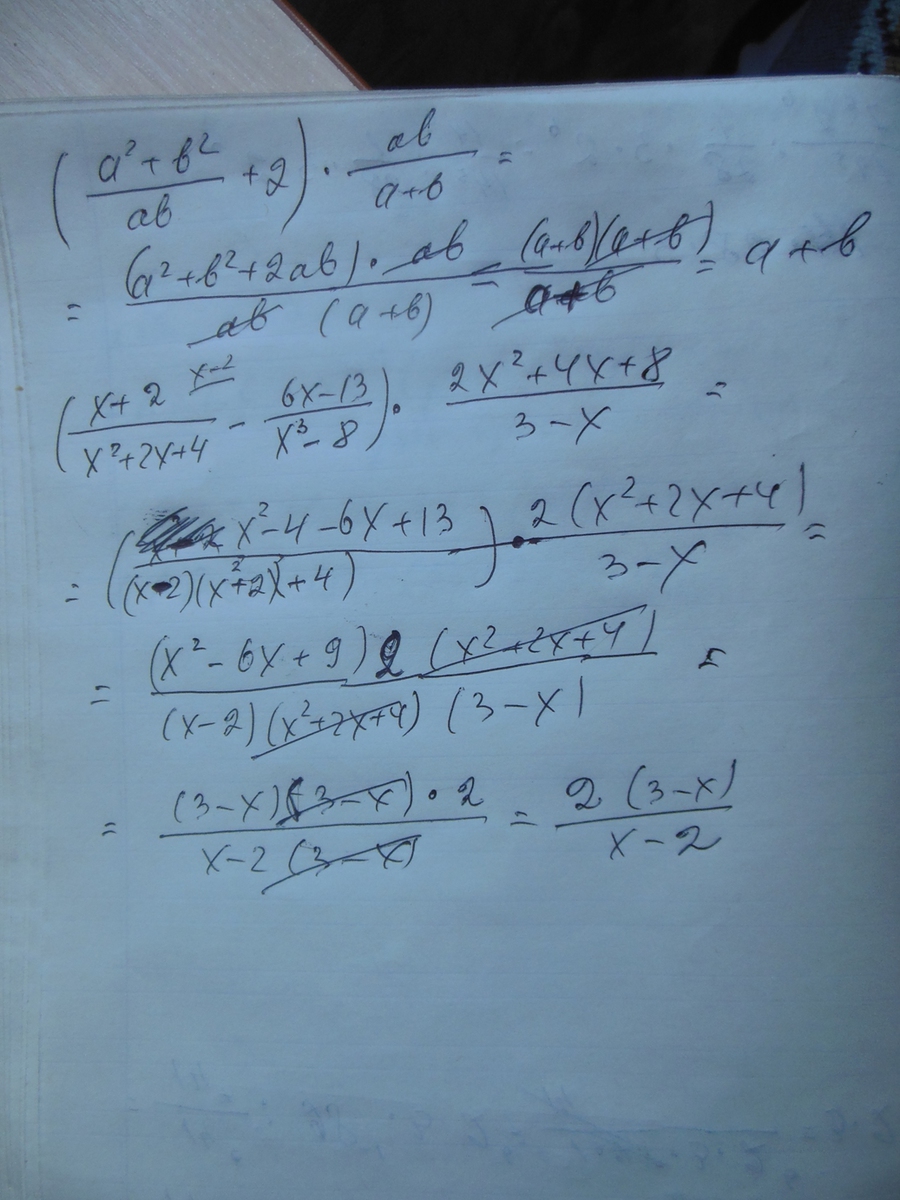 (a²+b²/ab + 2) · ab/a+b =
= (a²+b²+2ab) · ab/ab (a+b) = (a+b)(a+b)/a+b = a+b
(x+2/x²+2x+4 x-2 - 6x-13/x³-8) · 2x²+4x+8/3-x =
= (x²-4-6x+13/(x-2)(x²+2x+4)) · 2(x²+2x+4)/3-x =
= (x²-6x+9) 2 (x²+2x+4)/(x-2)(x²+2x+4) (3-x) =
= (3-x)(3-x) · 2/x-2 (3-x) = 2 (3-x)/x-2